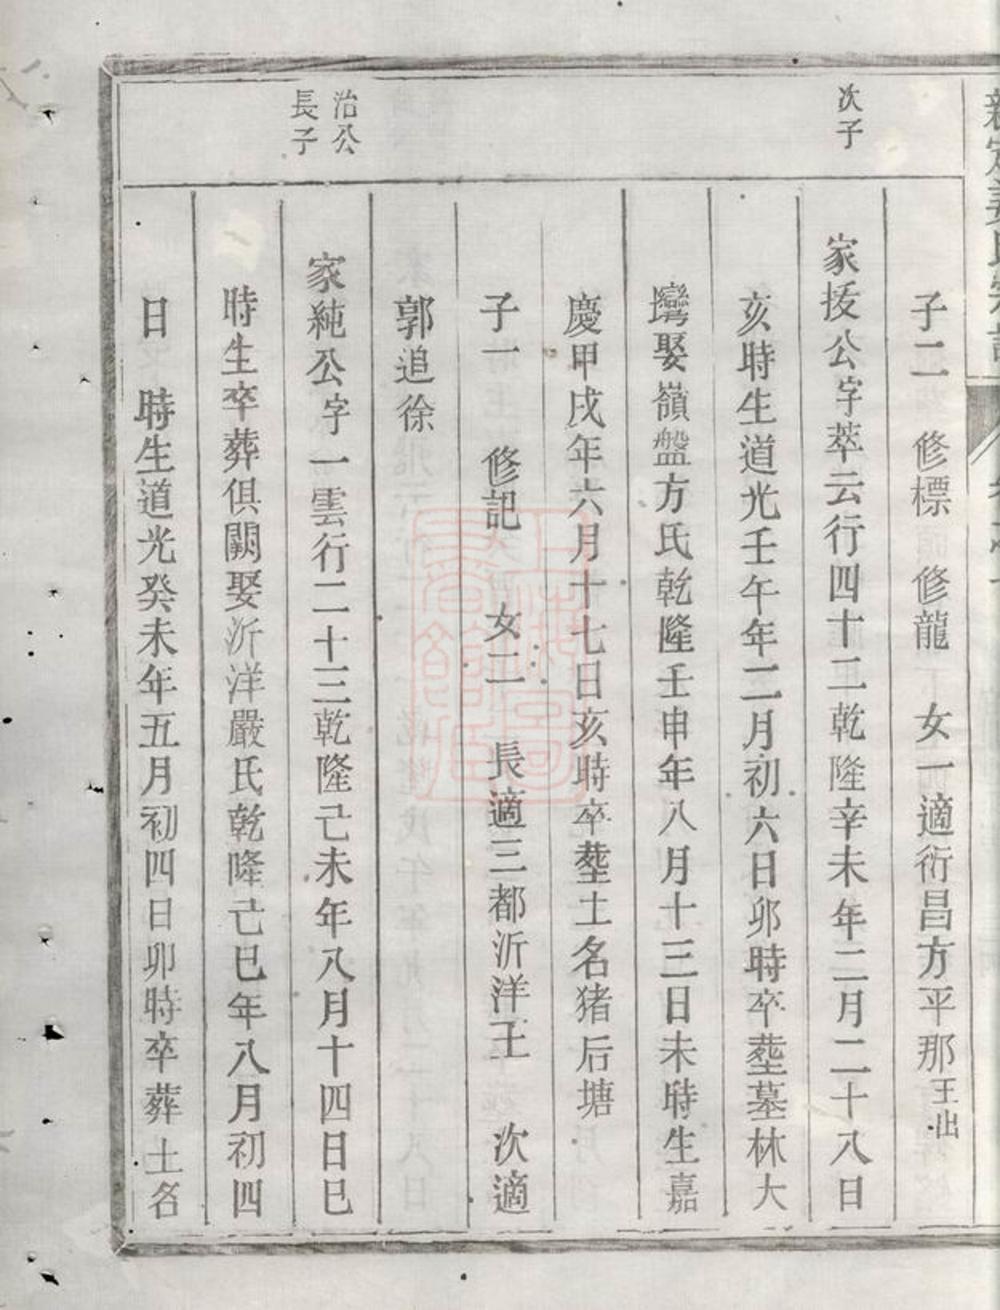 次子
子二 修標 修龍 女一適衍昌方平那王出
家援公字萃云行四十二乾隆辛未年二月二十八日
亥時生道光壬午年二月初六日卯時卒塟墓林大
灣娶嶺盤方氏乾隆壬申年八月十三日未時生嘉
慶甲戌年六月十七日亥時卒塟土名猪后塘
子一 修記 女二 長適三都沂洋王 次適
郭追徐
治公
長子
家純公字一雲行二十三乾隆己未年八月十四日巳
時生卒葬俱闕娶沂洋嚴氏乾隆己巳年八月初四
日 時生道光癸未年五月初四日卯時卒葬土名